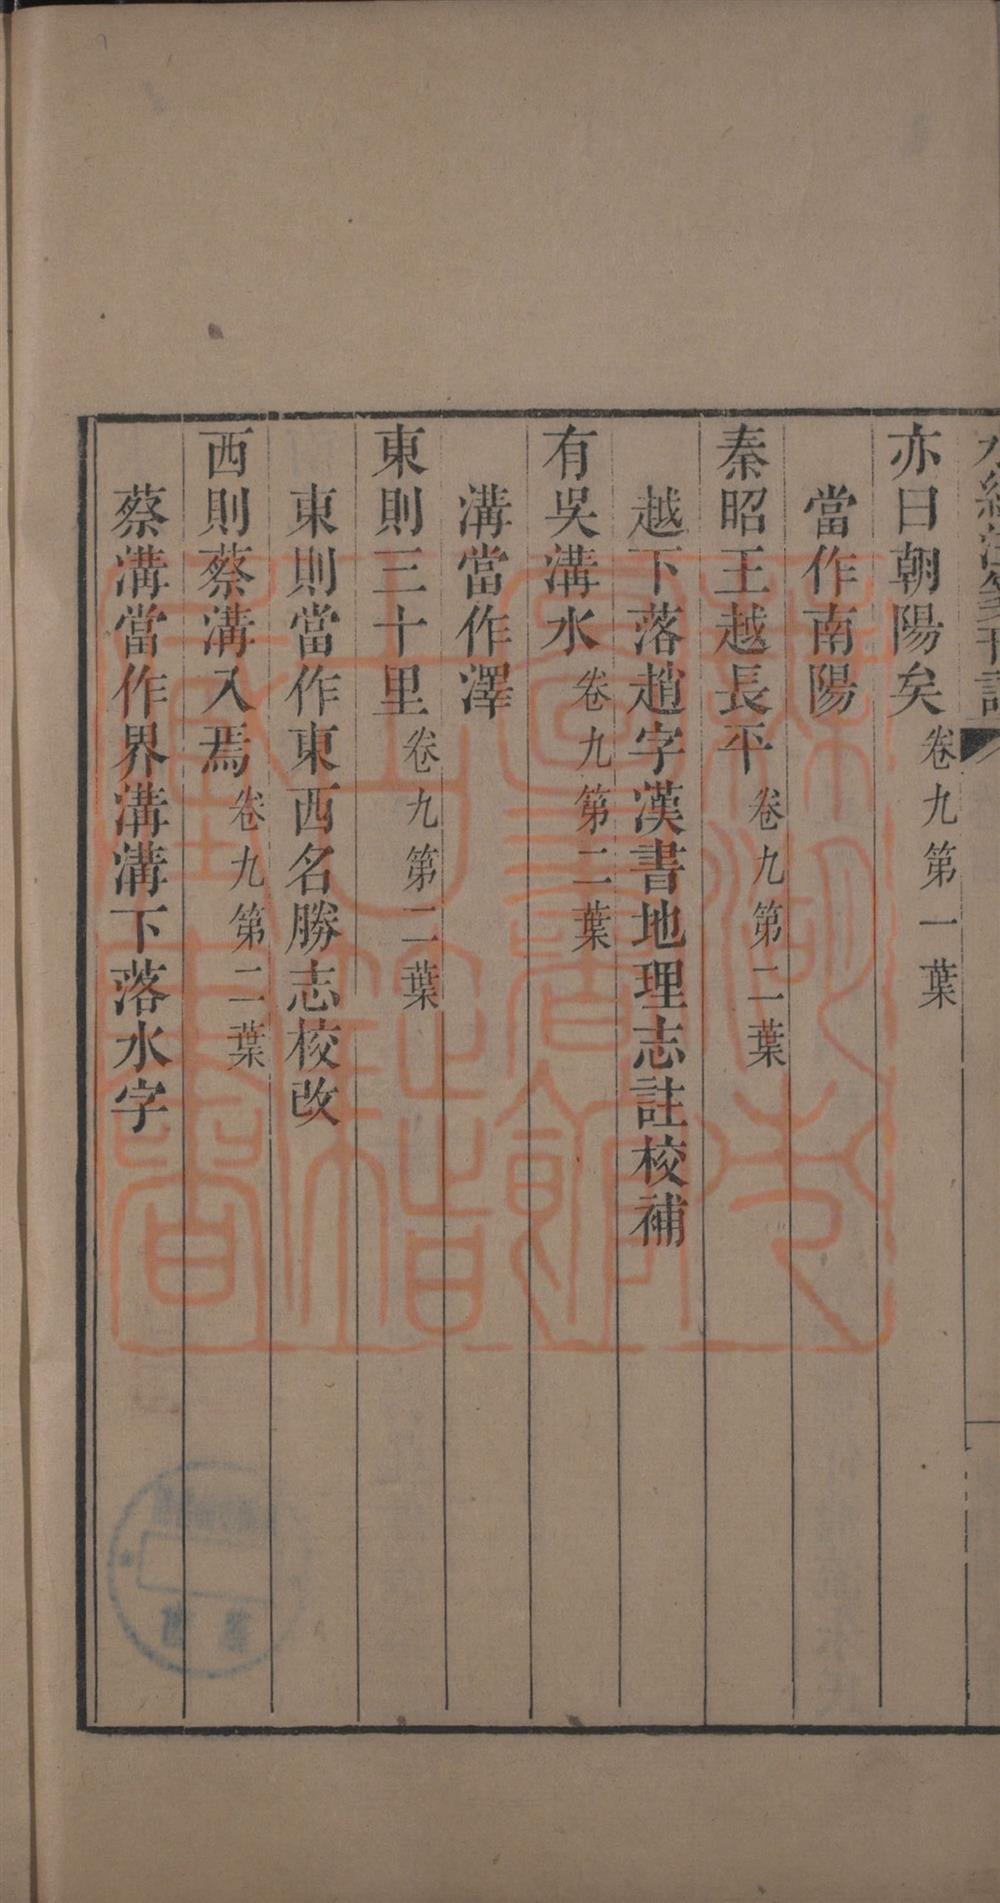 水經注箋刊誤
亦曰朝陽矣卷九第一葉
當作南陽
秦昭王越長平卷九第二葉
越下落趙字漢書地理志註校補
有吳溝水卷九第二葉
溝當作澤
東則三十里卷九第二葉
東則當作東西名勝志校改
西則蔡溝入焉卷九第二葉
蔡溝當作界溝溝下落水字